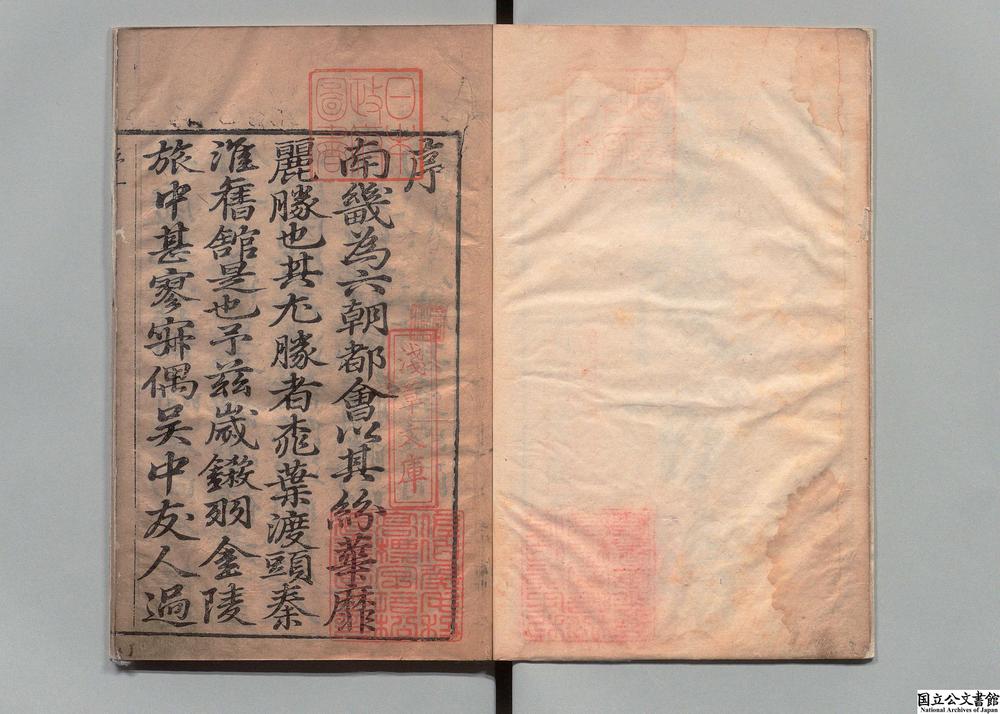 序
南畿為六朝都會以其紛華靡
麗勝也其尤勝者桃葉渡頭秦
淮舊舘是也予茲嵗鎩羽金陵
旅中甚寥寂偶吴中友人過
日本
政府
圖書
淺草文庫
国立公文書館
National Archives of Japan